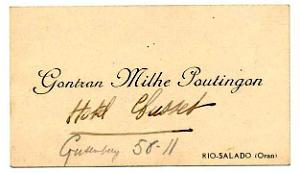 Gontran Milhe Poutingon
Hotel Cusset
Gutenberg 58-11
RIO-SALADO (Oran)